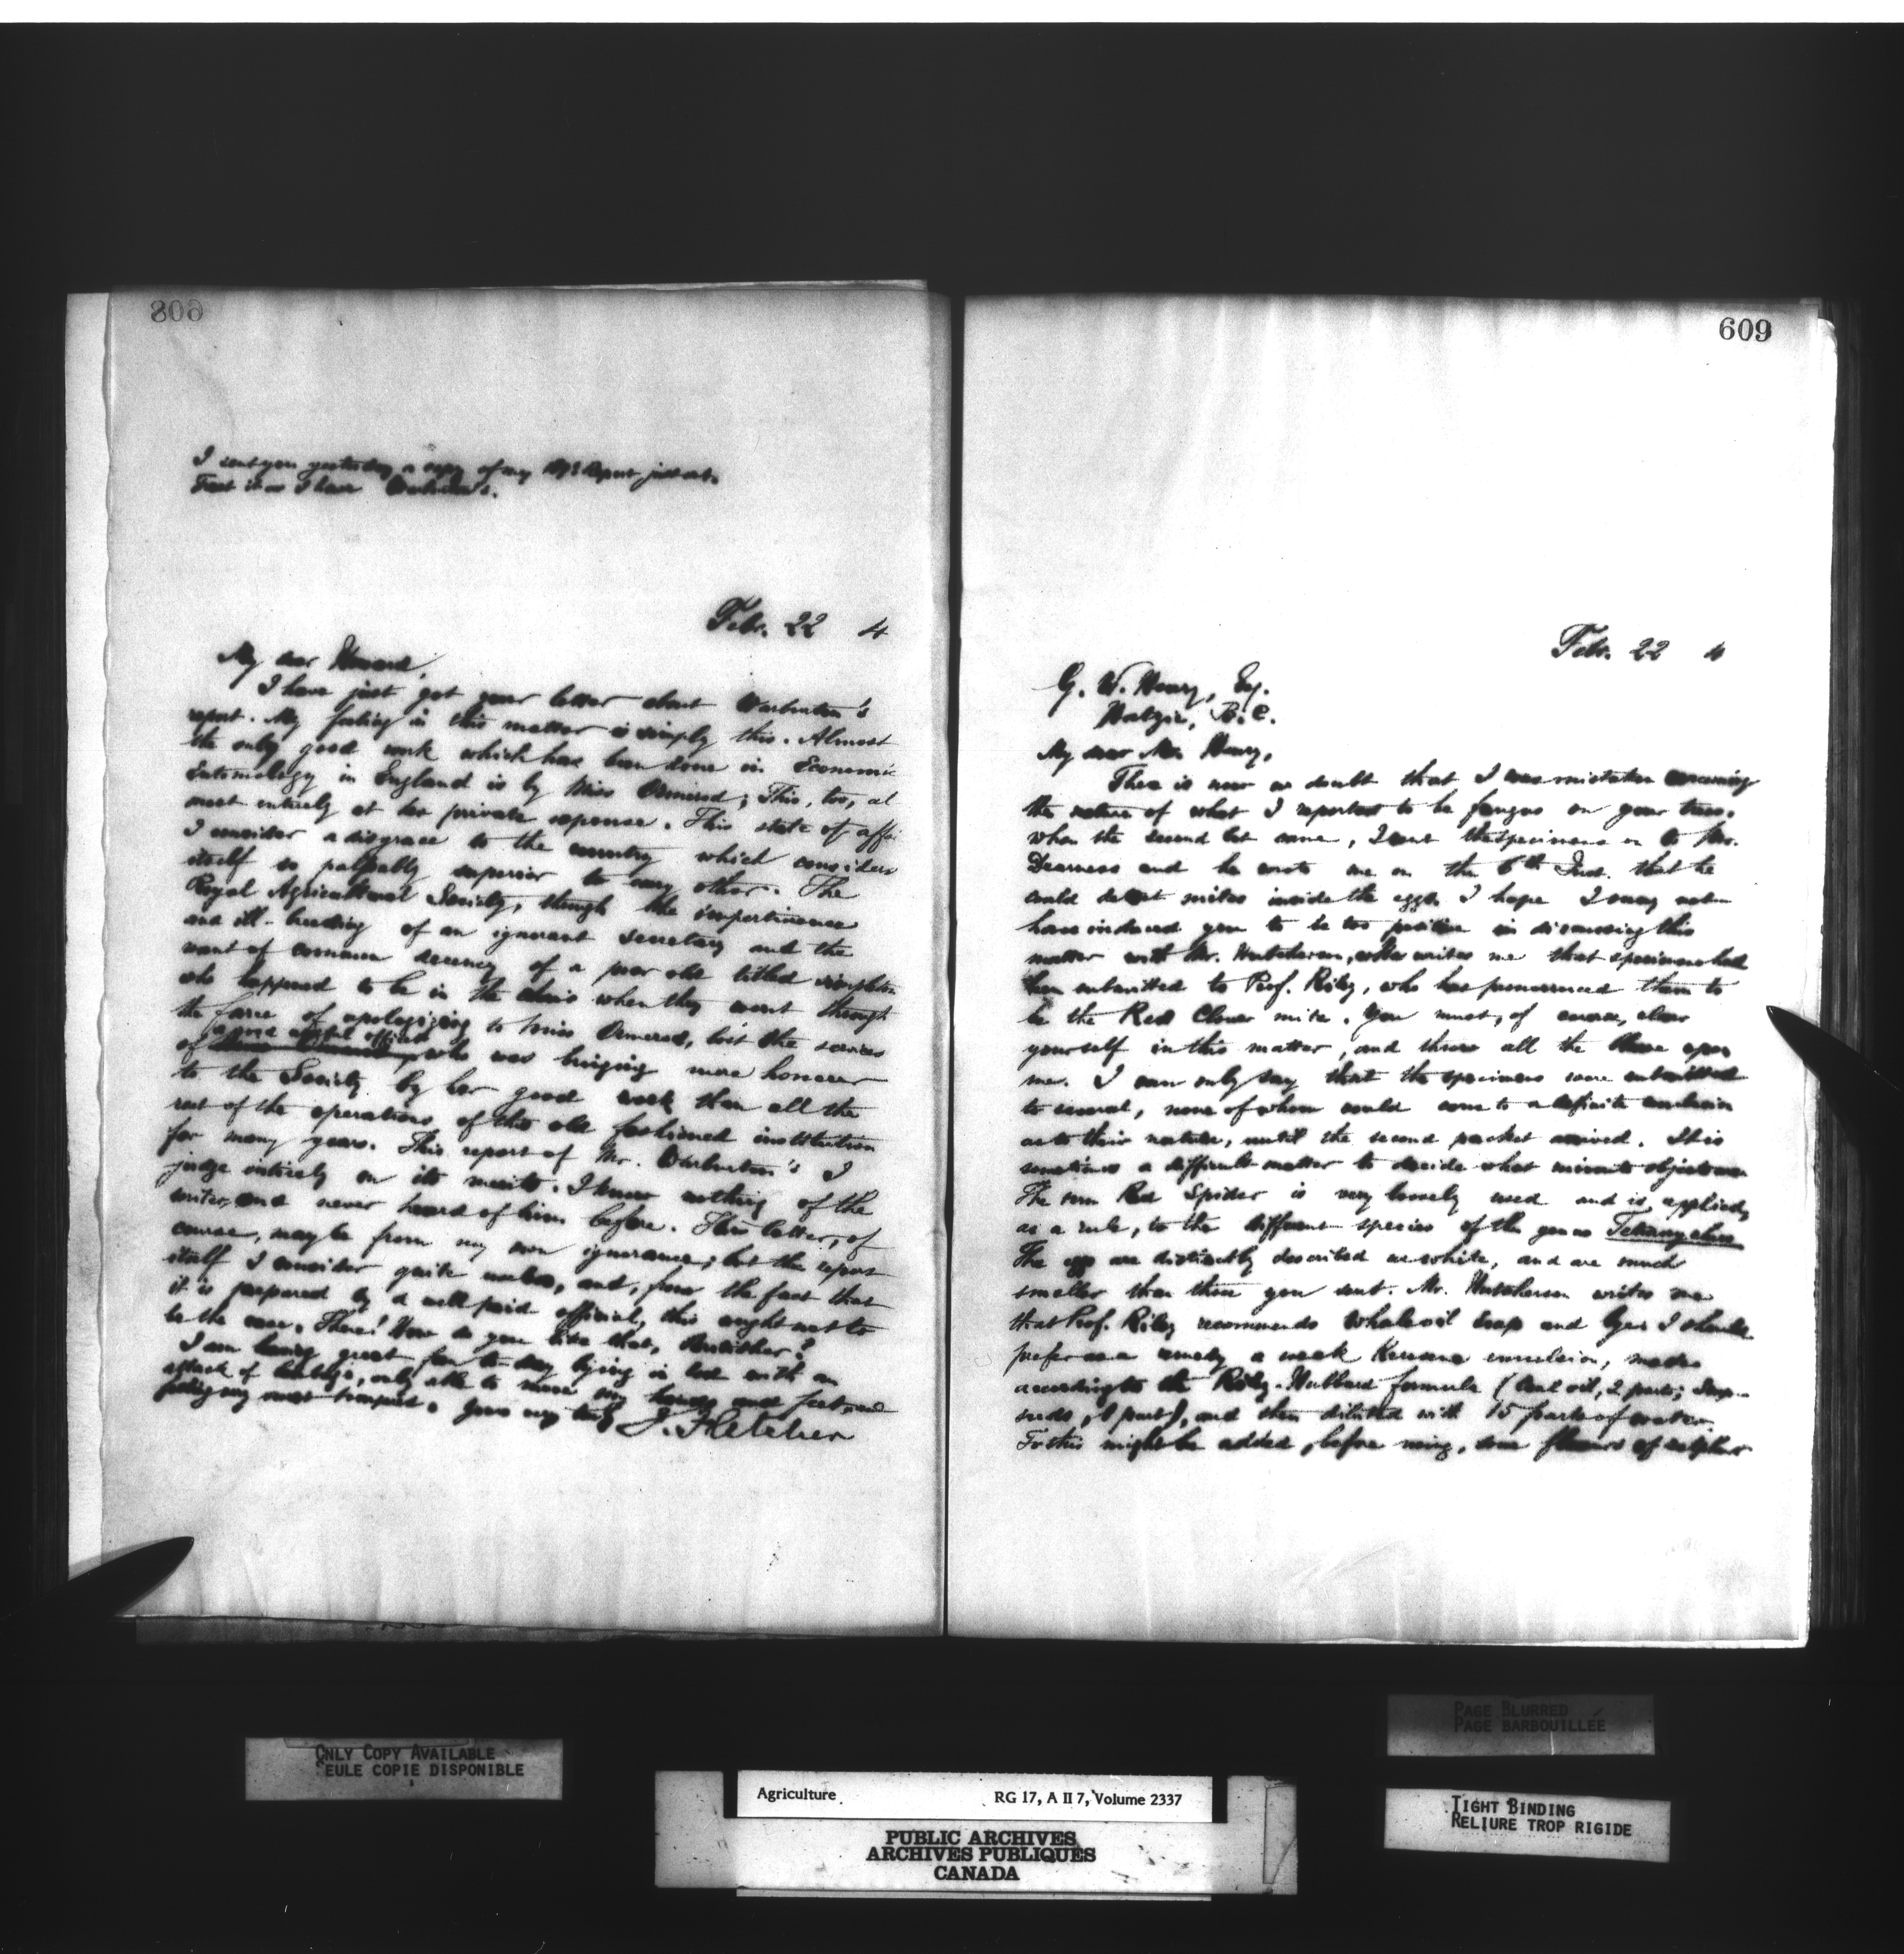 608
I sent you yesterday a copy of my Report just out.
Treat it as I have Warburton's.
Febr. 22 4
My dear Howard,
I have just got your letter about Warburton's
report. My feeling in this matter is simply this. Almost
the only good work which has been done in Economic
Entomology in England is by Miss Ormerod; This, too, al
most entirely at her private expense. This state of affai
I consider a disgrace to the country which considers
itself so palpably superior to any other. The
Royal Agricultural Society, through the impertinence
and ill-breeding of an ignorant Secretary and the
want of common decency of a poor old titled simpleton
who happened to be in the chair when they went through
the farce of apologizing to Miss Ormerod, lost the services
of a good useful officer, who was bringing more honour
to the Society by her good work than all the
rest of the operations of this old fashioned institution
for many years. This report of Mr. Warburton's I
judge entirely on its merits. I know nothing of the
writer, and never heard of him before. This latter, of
course, may be from my own ignorance; but the report
itself I consider quite useless, and, from the fact that
it is prepared by a well paid official, this ought not to
be the case. There! How do you like that, Britisher?
I am having great fun to-day lying in bed with an
attack of lumbago, only able to move my hands and feet, and
feeling my  Yours very truly J. Fletcher
609
Febr. 22 4
G. W. Henry, Esq.
Hatzic, B.C.
My dear Mr. Henry,
There is now no doubt that I was mistaken concerning
the nature of what I reported to be fungus on your trees.
When the second lot came, I sent the specimens on to Mr.
Dearness and he wrote me on the 6th Inst. that he
could detect mites inside the eggs. I hope I may not
have induced you to be too positive in discussing this
matter with Mr. Hutcherson, who writes me that specimens had
been submitted to Prof. Riley, who has pronounced them to
be the Red Clover mite. You must, of course, clear
yourself in this matter, and throw all the blame upon
me. I can only say that the specimens were submitted
to several, none of whom could come to a definite conclusion
as to their nature, until the second packet arrived. It is
sometimes a difficult matter to decide what minute objects are
The term Red Spider is very loosely used and is applied,
as a rule, to the different species of the genus Tetranychus
The eggs are distinctly described as white, and are much
smaller than those you sent. Mr. Hutcherson writes me
that Prof. Riley recommends Whale oil Soap and lye. I should
prefer as a remedy a weak Kerosene emulsion, made
according to the Riley-Hubbard formula (Coal oil, 2 parts; Soap-
suds, 1 part), and then diluted with 15 parts of water.
To this might be added, before using, some flowers of sulphur
ONLY COPY AVAILABLE
SEULE COPIE DISPONIBLE
PAGE BLURRED
PAGE BARBOUILLÉE
TIGHT BINDING
RELIURE TROP RIGIDE
Agriculture RG 17, A II 7, Volume 2337
PUBLIC ARCHIVES
ARCHIVES PUBLIQUES
CANADA